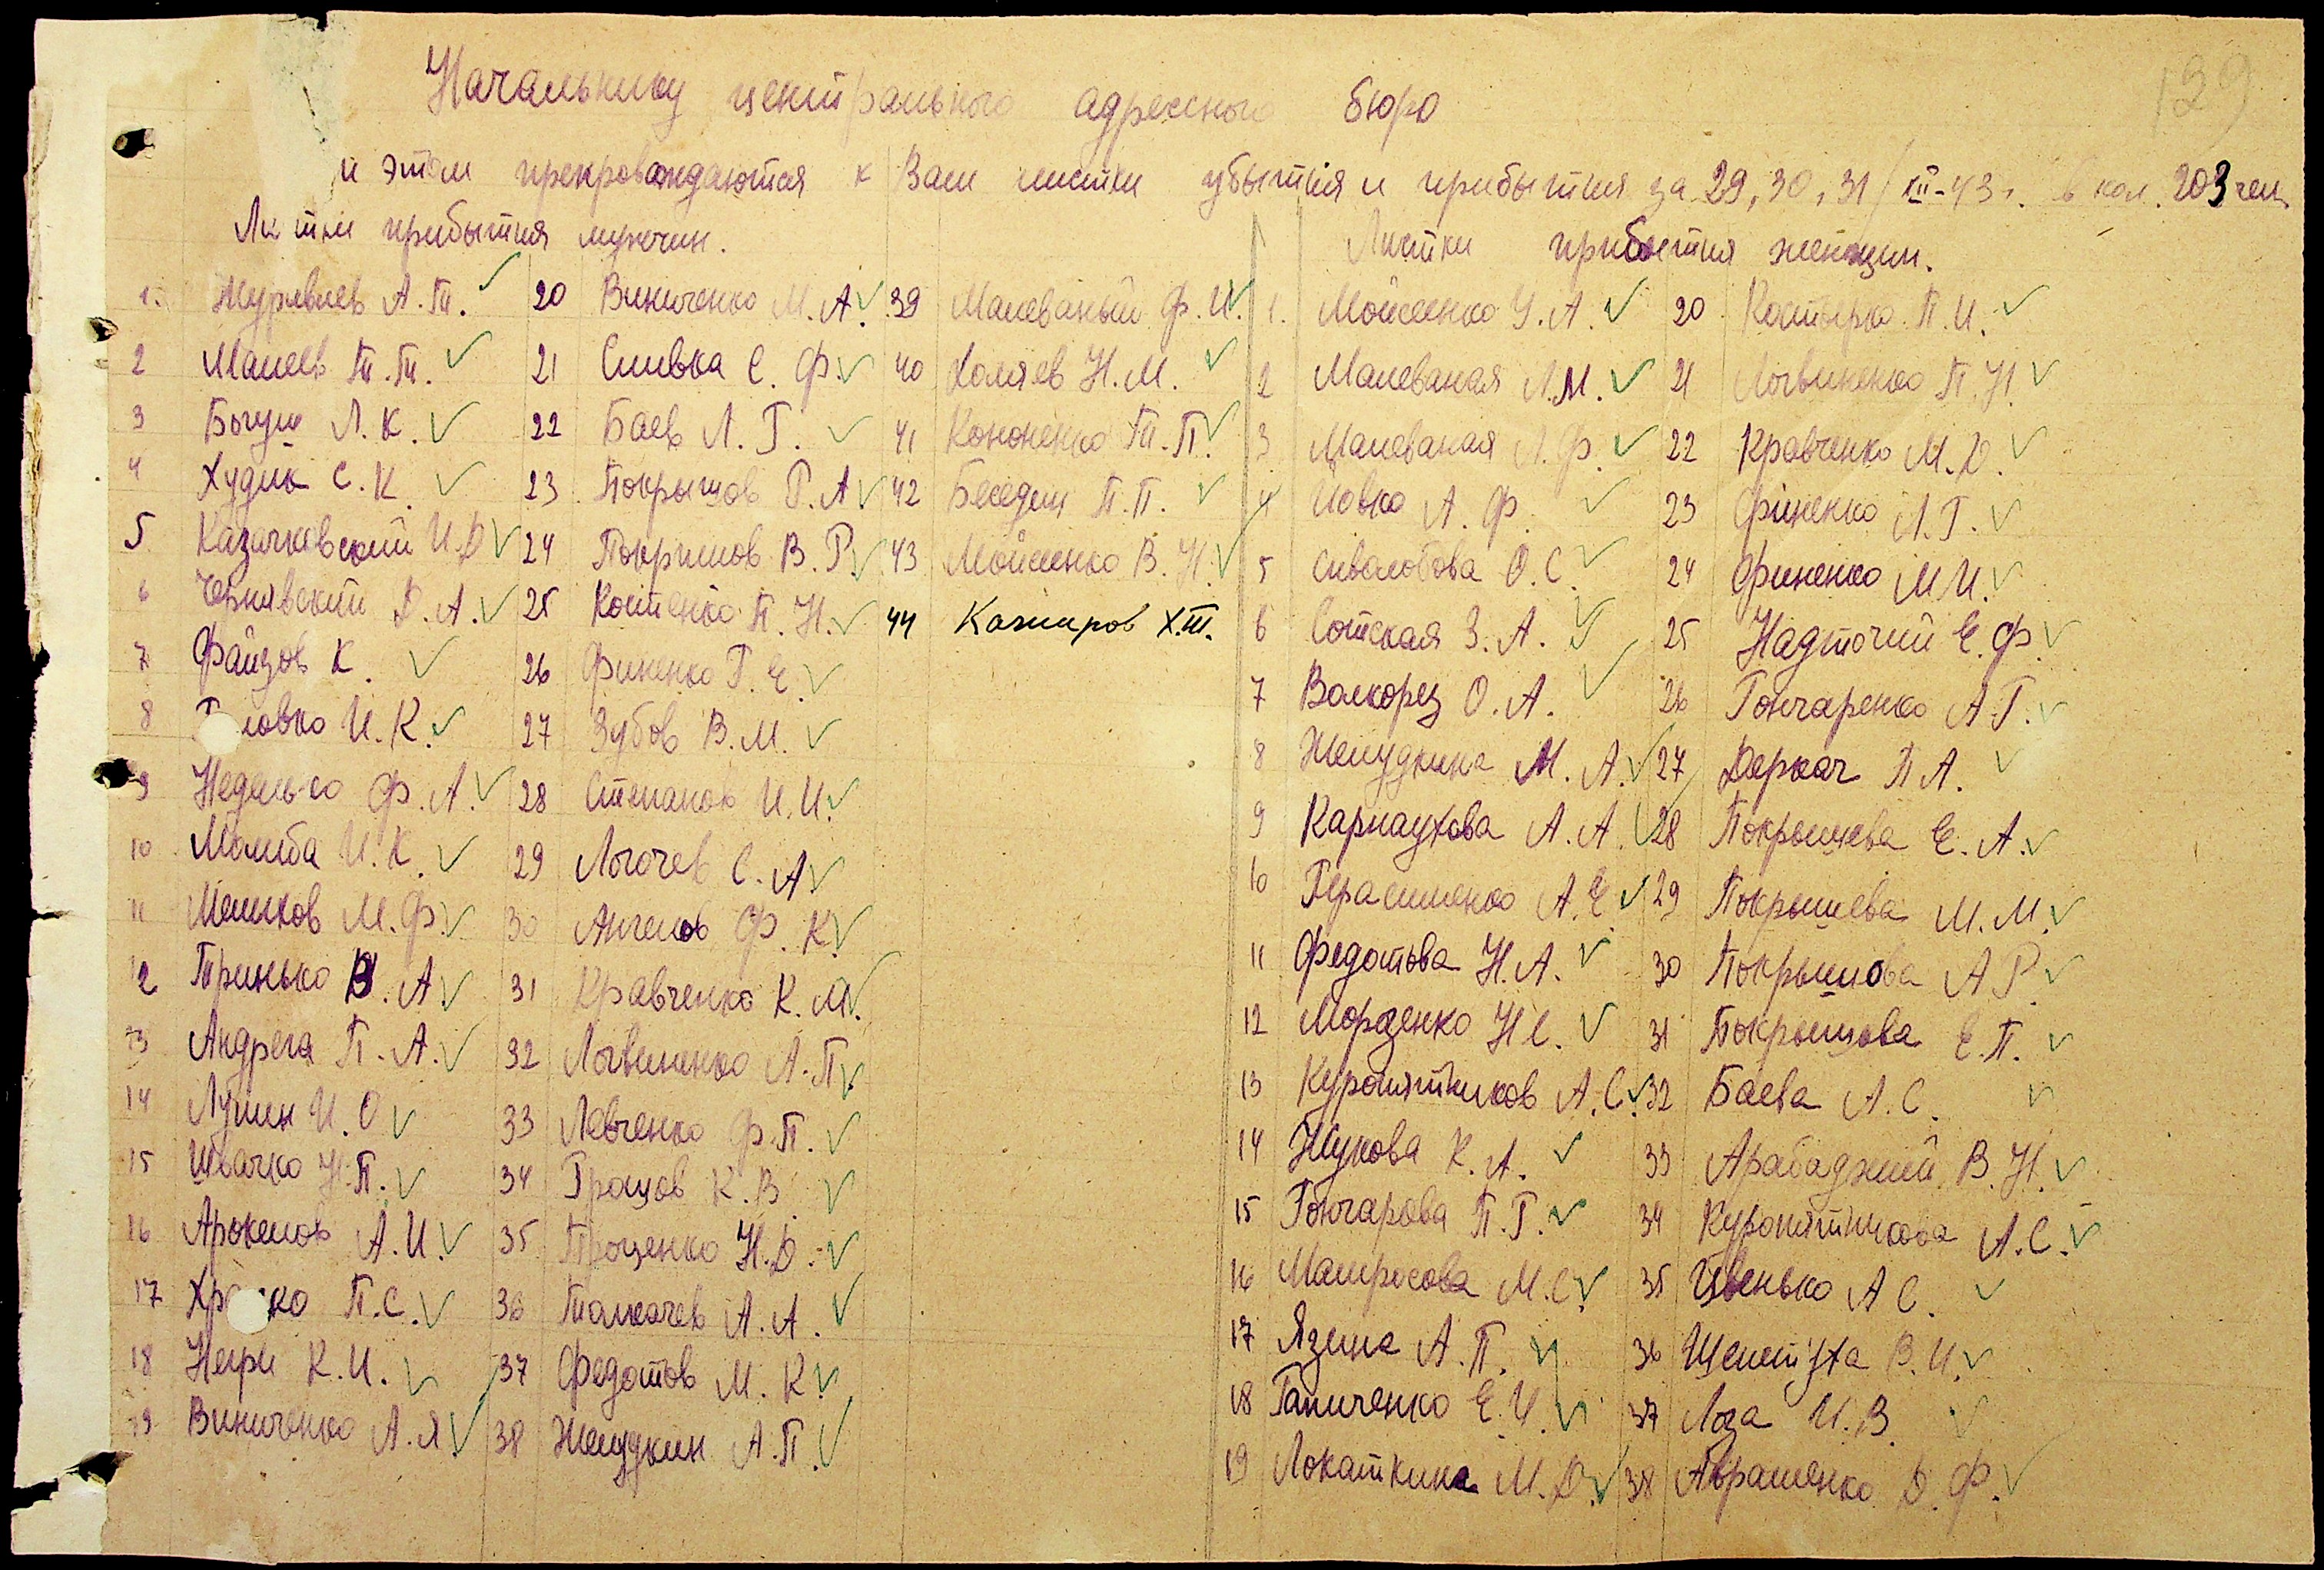 139
Начальнику центрального адресного бюро
и этом препровождаются к Вам листки убытия и прибытия за 29, 30, 31/XII-43г. в кол. 203 чел.
Листки прибытия мужчин.
1. Журавлев А.Т.
2 Малеев Т.Т.
3 Богуш Л.К.
4 Худик С.К.
5 Казачковский И.Д
6 Чернявский Д.А.
7 Файзов К.
8 ловко И.К.
9 Неделько Ф.А.
10 Момба И.К.
11 Мешков М.Ф.
12 Тринько В.А.
13 Андрега П.А.
14 Лупин И.О
15 Швачко Н.П.
16 Аркелов А.И.
17 Хр ко П.С.
18 Негри К.И.
19 Виниченко А.Я
20 Виниченко М.А.
21 Сливка С.Ф.
22 Баев Л.Г.
23 Покрышов Р.А
24 Покришов В.Р.
25 Костенко П.Н.
26 Финенко Г.Е.
27 Зубов В.М.
28 Степанов И.И.
29 Логачев С.А
30 Ангелов Ф.К
31 Кравченко К.М.
32 Логвиненко А.П
33 Левченко Ф.П.
34 Грацов К.В.
35 Проценко Н.Д.
36 Толкачев А.А.
37 Федотов М.К
38 Желудкин А.П.
39 Малеваный Ф.И.
40 Холяев Н.М.
41 Кононенко Т.П.
42 Беседин П.П.
43 Мойсенко В.Н.
44 Казмиров Х.Ш.
Листки прибытия женщин.
1. Мойсеенко У.А.
2 Малеваная Л.М.
3 Малеваная Л.Ф.
4 Цовка А.Ф.
5 Сивалобова О.С.
6 Сотская З.А.
7 Волкорез О.А.
8 Желудкина М.А.
9 Карнаухова А.А.
10 Герасименко А.Е
11 Федотова Н.А.
12 Морзенко Н.С.
13 Куропятников А.С.
14 Жукова К.А.
15 Гончарова П.Г.
16 Матросова М.С.
17 Язина А.П.
18 Ганиченко Е.И.
19 Локаткина М.Д.
20 Костырко П.И.
21 Логвиненко П.Н.
22 Кравченко М.Д.
23 Финенко Л.Г.
24 Финенко М.И.
25 Надточий Е.Ф.
26 Гончаренко А.Г.
27 Деркач П.А.
28 Покрышева Е.А.
29 Покрышева М.М.
30 Покрышова А.Р.
31 Покрышова Е.П.
32 Баева А.С.
33 Арабаджий В.Н.
34 Куропятникова А.С.
35 Цвенько А.С.
36 В.И.
37 Лоза И.В.
38 Авраменко Д.Ф.